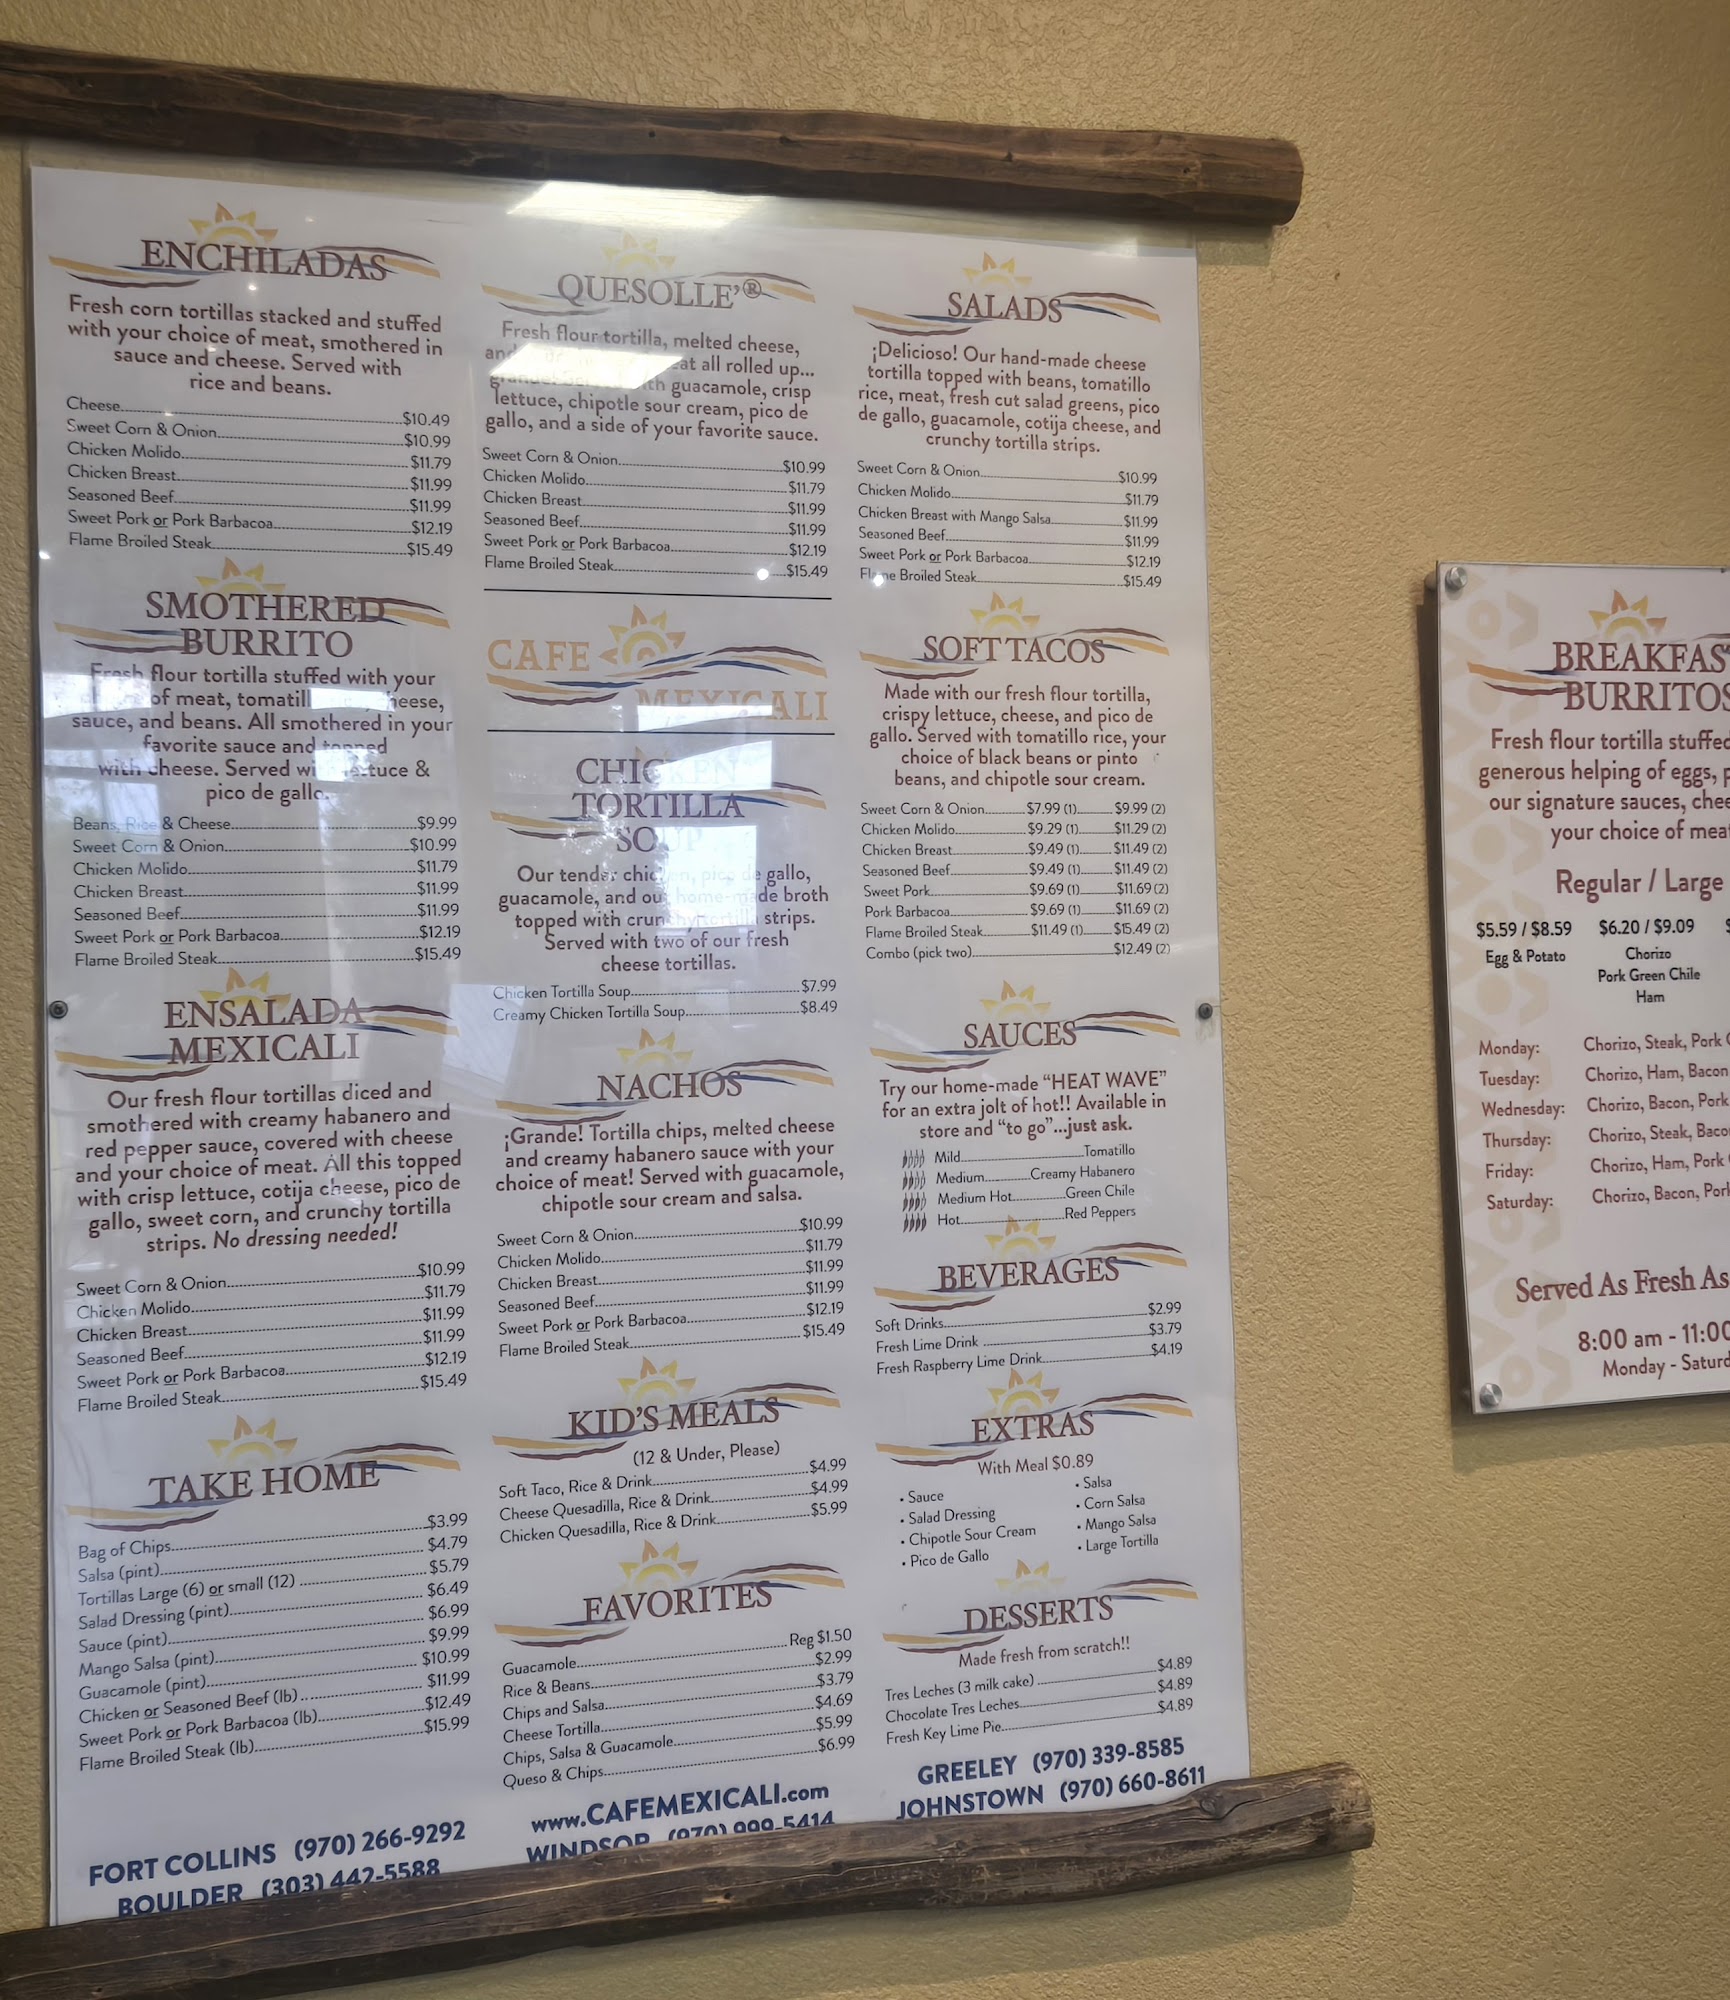 ENCHILADAS
Fresh corn tortillas stacked and stuffed
with your choice of meat, smothered in
sauce and cheese. Served with
rice and beans.
Cheese $10.49
Sweet Corn & Onion $10.99
Chicken Molido $11.79
Chicken Breast $11.99
Seasoned Beef $11.99
Sweet Pork or Pork Barbacoa $12.19
Flame Broiled Steak $15.49
SMOTHERED
BURRITO
Fresh flour tortilla stuffed with your
of meat, tomatill cheese,
sauce, and beans. All smothered in your
favorite sauce and topped
with cheese. Served with lettuce &
pico de gallo.
Beans, Rice & Cheese $9.99
Sweet Corn & Onion $10.99
Chicken Molido $11.79
Chicken Breast $11.99
Seasoned Beef $11.99
Sweet Pork or Pork Barbacoa $12.19
Flame Broiled Steak $15.49
ENSALADA
MEXICALI
Our fresh flour tortillas diced and
smothered with creamy habanero and
red pepper sauce, covered with cheese
and your choice of meat. All this topped
with crisp lettuce, cotija cheese, pico de
gallo, sweet corn, and crunchy tortilla
strips. No dressing needed!
Sweet Corn & Onion $10.99
Chicken Molido $11.79
Chicken Breast $11.99
Seasoned Beef $11.99
Sweet Pork or Pork Barbacoa $12.19
Flame Broiled Steak $15.49
TAKE HOME
Bag of Chips $3.99
Salsa (pint) $4.79
Tortillas Large (6) or small (12) $5.79
Salad Dressing (pint) $6.49
Sauce (pint) $6.99
Mango Salsa (pint) $9.99
Guacamole (pint) $10.99
Chicken or Seasoned Beef (lb) $11.99
Sweet Pork or Pork Barbacoa (lb) $12.49
Flame Broiled Steak (lb) $15.99
FORT COLLINS (970) 266-9292
BOULDER (303) 442-5588
QUESOLLE'®
Fresh flour tortilla, melted cheese,
meat all rolled up...
with guacamole, crisp
lettuce, chipotle sour cream, pico de
gallo, and a side of your favorite sauce.
Sweet Corn & Onion $10.99
Chicken Molido $11.79
Chicken Breast $11.99
Seasoned Beef $11.99
Sweet Pork or Pork Barbacoa $12.19
Flame Broiled Steak $15.49
CAFE
MEXICALI
CHICKEN
TORTILLA
SOUP
Our tender chicken, pico de gallo,
guacamole, and our home-made broth
topped with crunchy tortilla strips.
Served with two of our fresh
cheese tortillas.
Chicken Tortilla Soup $7.99
Creamy Chicken Tortilla Soup $8.49
NACHOS
¡Grande! Tortilla chips, melted cheese
and creamy habanero sauce with your
choice of meat! Served with guacamole,
chipotle sour cream and salsa.
Sweet Corn & Onion $10.99
Chicken Molido $11.79
Chicken Breast $11.99
Seasoned Beef $11.99
Sweet Pork or Pork Barbacoa $12.19
Flame Broiled Steak $15.49
KID'S MEALS
(12 & Under, Please)
Soft Taco, Rice & Drink $4.99
Cheese Quesadilla, Rice & Drink $4.99
Chicken Quesadilla, Rice & Drink $5.99
FAVORITES
Guacamole Reg $1.50
Rice & Beans $2.99
Chips and Salsa $3.79
Cheese Tortilla $4.69
Chips, Salsa & Guacamole $5.99
Queso & Chips $6.99
www.CAFEMEXICALI.com
WINDSOR (970) 999-5414
SALADS
¡Delicioso! Our hand-made cheese
tortilla topped with beans, tomatillo
rice, meat, fresh cut salad greens, pico
de gallo, guacamole, cotija cheese, and
crunchy tortilla strips.
Sweet Corn & Onion $10.99
Chicken Molido $11.79
Chicken Breast with Mango Salsa $11.99
Seasoned Beef $11.99
Sweet Pork or Pork Barbacoa $12.19
Flame Broiled Steak $15.49
SOFT TACOS
Made with our fresh flour tortilla,
crispy lettuce, cheese, and pico de
gallo. Served with tomatillo rice, your
choice of black beans or pinto
beans, and chipotle sour cream.
Sweet Corn & Onion $7.99 (1) $9.99 (2)
Chicken Molido $9.29 (1) $11.29 (2)
Chicken Breast $9.49 (1) $11.49 (2)
Seasoned Beef $9.49 (1) $11.49 (2)
Sweet Pork $9.69 (1) $11.69 (2)
Pork Barbacoa $9.69 (1) $11.69 (2)
Flame Broiled Steak $11.49 (1) $15.49 (2)
Combo (pick two) $12.49 (2)
SAUCES
Try our home-made "HEAT WAVE"
for an extra jolt of hot!! Available in
store and "to go"...just ask.
Mild Tomatillo
Medium Creamy Habanero
Medium Hot Green Chile
Hot Red Peppers
BEVERAGES
Soft Drinks $2.99
Fresh Lime Drink $3.79
Fresh Raspberry Lime Drink $4.19
EXTRAS
With Meal $0.89
• Sauce • Salsa
• Salad Dressing • Corn Salsa
• Chipotle Sour Cream • Mango Salsa
• Pico de Gallo • Large Tortilla
DESSERTS
Made fresh from scratch!!
Tres Leches (3 milk cake) $4.89
Chocolate Tres Leches $4.89
Fresh Key Lime Pie $4.89
GREELEY (970) 339-8585
JOHNSTOWN (970) 660-8611
BREAKFAS
BURRITOS
Fresh flour tortilla stuffed
generous helping of eggs, p
our signature sauces, chee
your choice of mea
Regular / Large
$5.59 / $8.59 $6.20 / $9.09 $
Egg & Potato Chorizo
Pork Green Chile
Ham
Monday: Chorizo, Steak, Pork
Tuesday: Chorizo, Ham, Bacon
Wednesday: Chorizo, Bacon, Pork
Thursday: Chorizo, Steak, Baco
Friday: Chorizo, Ham, Pork
Saturday: Chorizo, Bacon, Pork
Served As Fresh As
8:00 am - 11:00
Monday - Saturd